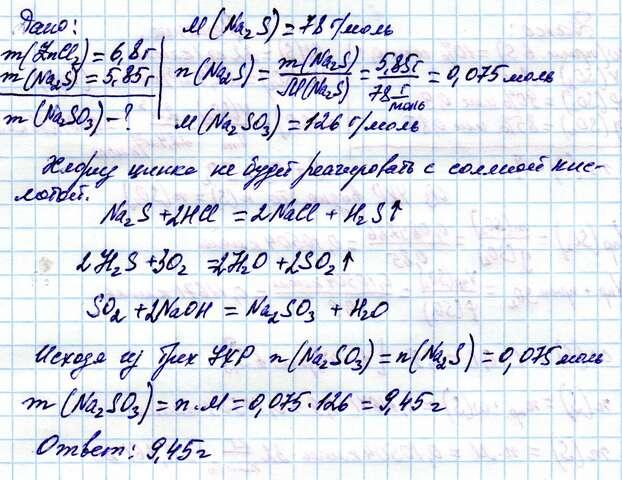 Дано:
m(ZnCl₂) = 6,8г
m(Na₂S) = 5,85г
m(Na₂SO₃) – ?
M(Na₂S) = 78 г/моль
n(Na₂S) = m(Na₂S)/M(Na₂S) = 5,85г/78 г/моль = 0,075 моль
M(Na₂SO₃) = 126 г/моль
Хлорид цинка не будет реагировать с соляной кис-
лотой.
Na₂S + 2HCl = 2NaCl + H₂S↑
2H₂S + 3O₂ = 2H₂O + 2SO₂↑
SO₂ + 2NaOH = Na₂SO₃ + H₂O
Исходя из трех УХР n(Na₂SO₃) = n(Na₂S) = 0,075 моль
m(Na₂SO₃) = n·M = 0,075·126 = 9,45 г
Ответ: 9,45г